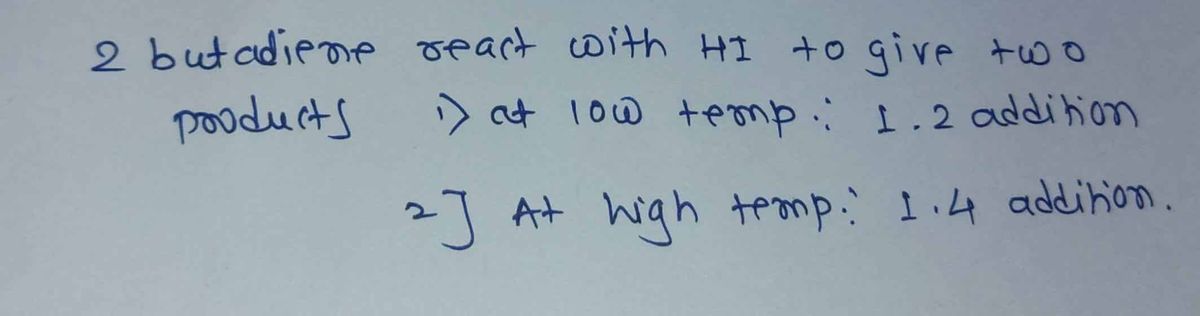 2 butadiene react with HI to give two
products 1) at low temp: 1.2 addition
2] At high temp: 1.4 addition.